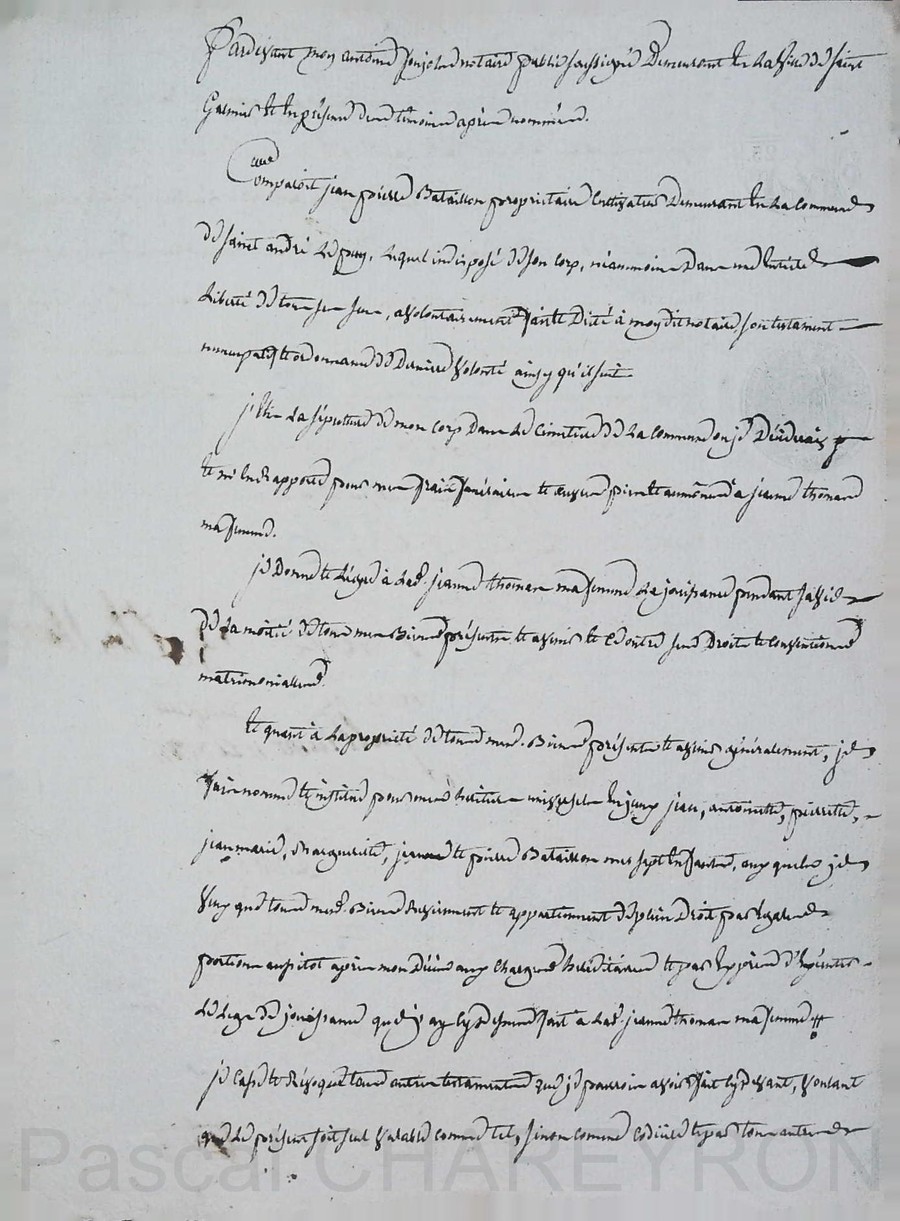 Pardevant moy antoine notaire public soussigné Demeurant en La Ville de Saint
Galmier et en présence des témoins après nommés.
Comparoit jean pierre Bataillon propriétaire Cultivateur Demeurant en La Commune
de saint andré Le puy, Lequel indisposé de son corp, néanmoins Dans une Entière
Liberté de tous ses sens, a volontairement fait et Dicté à moy dit notaire, son testament
nuncupatif et ordonnance de Dernière Volonté ainsy qu'il suit
j'Elis La sépulture de mon corp Dans Le Cimetière de La Commune ou je Décéderais
et m'En rapporte pour mes frais funéraires et œuvres pies et aumônes a jeanne thomas
ma femme.
je Donne et Lègue à Lad. jeanne thomas ma femme La jouissance pendant sa vie
de La moitié de tous mes Biens présents et avenir et Ce outre ses Droits et Conventions
matrimonialles
Et quant à La propriété de tous mes Biens présents et avenir généralement, je
fais nomme et institue pour mes héritiers universels Enjaux jean, antoinette, pierrette,
jean marie, Marguerite, jeanne et pierre Bataillon mes sept Enfants, auxquels je
Veux que tous mes Biens Reviennent et appartiennent de plein Droit par égales
portions aussitot après mon Décès aux Charges héréditaires et par Exprès d'Exécuter
Le Legs de jouissance que j'ay Cy dessus fait a Lad. jeanne thomas ma femme
je Casse et Révoque tous autres testaments que je pourrois avoir fait Cy devant, Voulant
que Le présent soit seul Valable comme tel, sinon comme Codicile et par tous autres
Pascal CHAREYRON